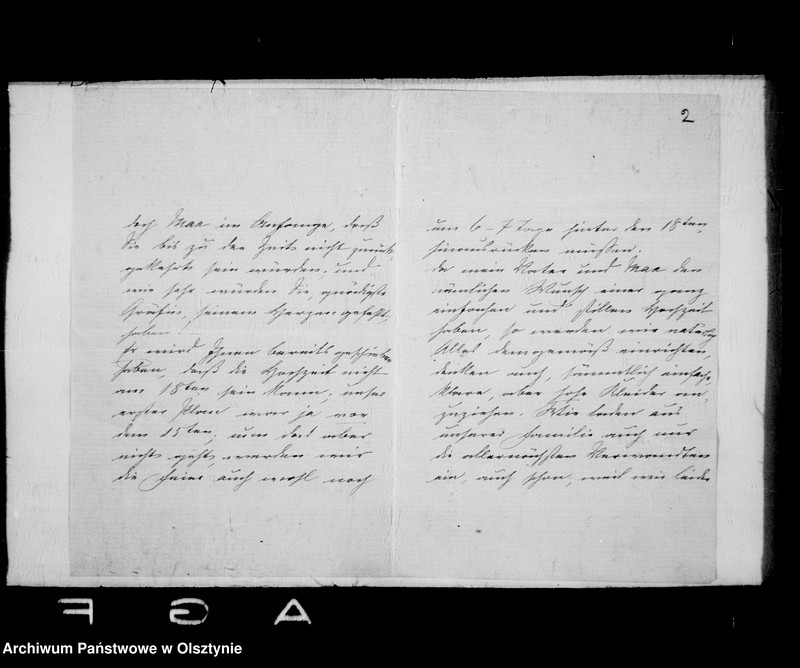 2
doch Max im Anfange, daß
Sie bis zu der Zeit nicht zurück-
gekehrt sein würden, und
wie sehr würden Sie, gnädigste
Gräfin, seinem Herzen gefehlt
haben!
Er wird Ihnen bereits geschrieben
haben, daß die Hochzeit nicht
am 18ten sein kann; unser
erster Plan war ja vor
dem 15ten; nun das aber
nicht geht, werden wir
die Feier auch wohl noch
um 6-7 Tage hinter den 18ten
hinausrücken müssen.
Da mein Vater und Max den
nämlichen Wunsch einer ganz
einfachen und stillen Hochzeit
haben, so werden wir natürlich
Alles demgemäß einrichten,
denken auch, sämmtlich einfache,
klare, aber hohe Kleider an-
zuziehen. Wir laden aus
unserer Familie auch nur
die allernächsten Verwandten
ein, auch schon, weil wir leider
A G F
Archiwum Państwowe w Olsztynie